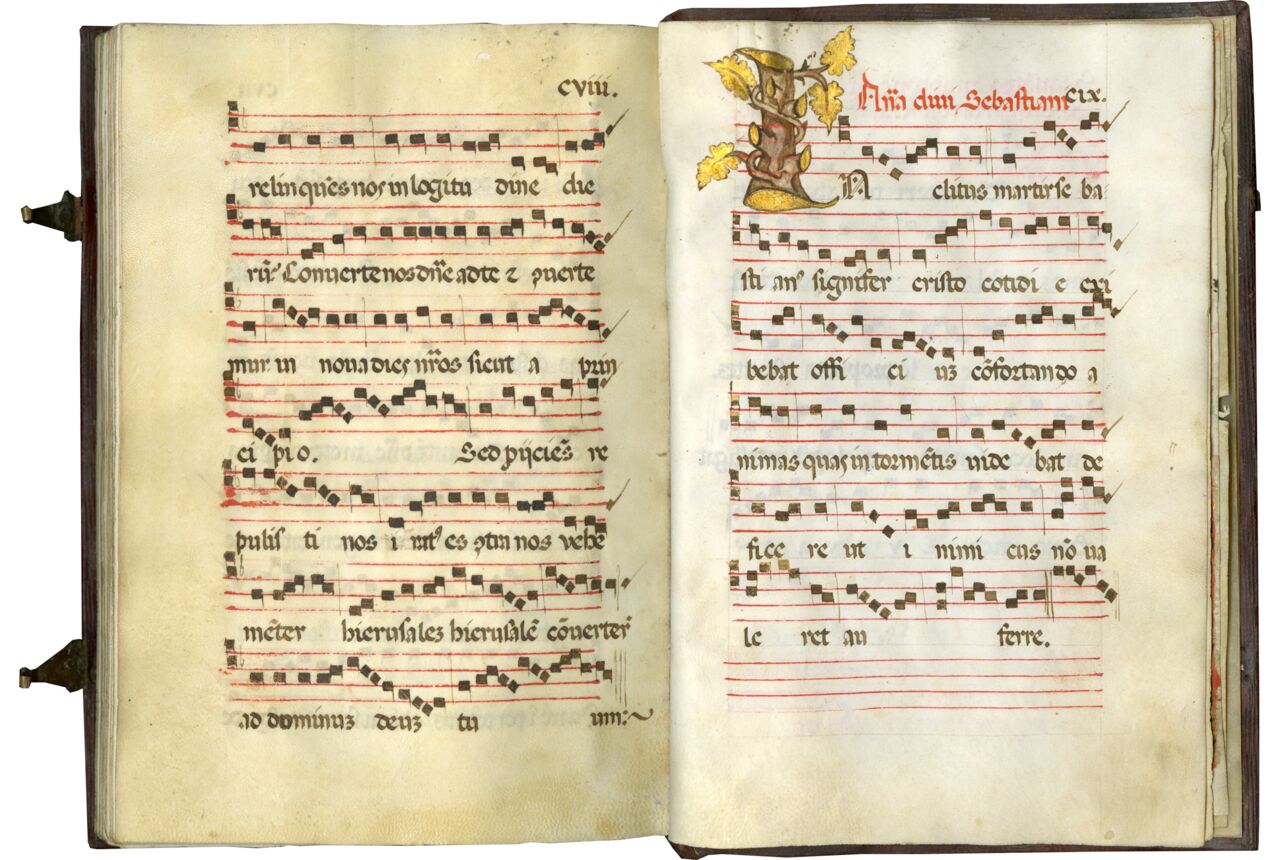 cviii.
relinques nos in logitu dine die
rū. Converte nos dn̄e ad te & ꝯverte
mur in nova dies nr̄os sicut a prin
ci pi o. Sed ꝓijciēs re
pulis ti nos i rat⁹ es ꝯtra nos vehe
mēter hierusalez hierusalē cōverter
ad dominuz deuz tu um:~
Añā divi Sebastiani cix.
IN clitus martir se ba
sti an⁹ signifer cristo cotidi e exi
bebat offi ci uz cōfortando a
nimas quas in tormētis vide bat de
fice re ut i nimi cus nō va
le ret au ferre.